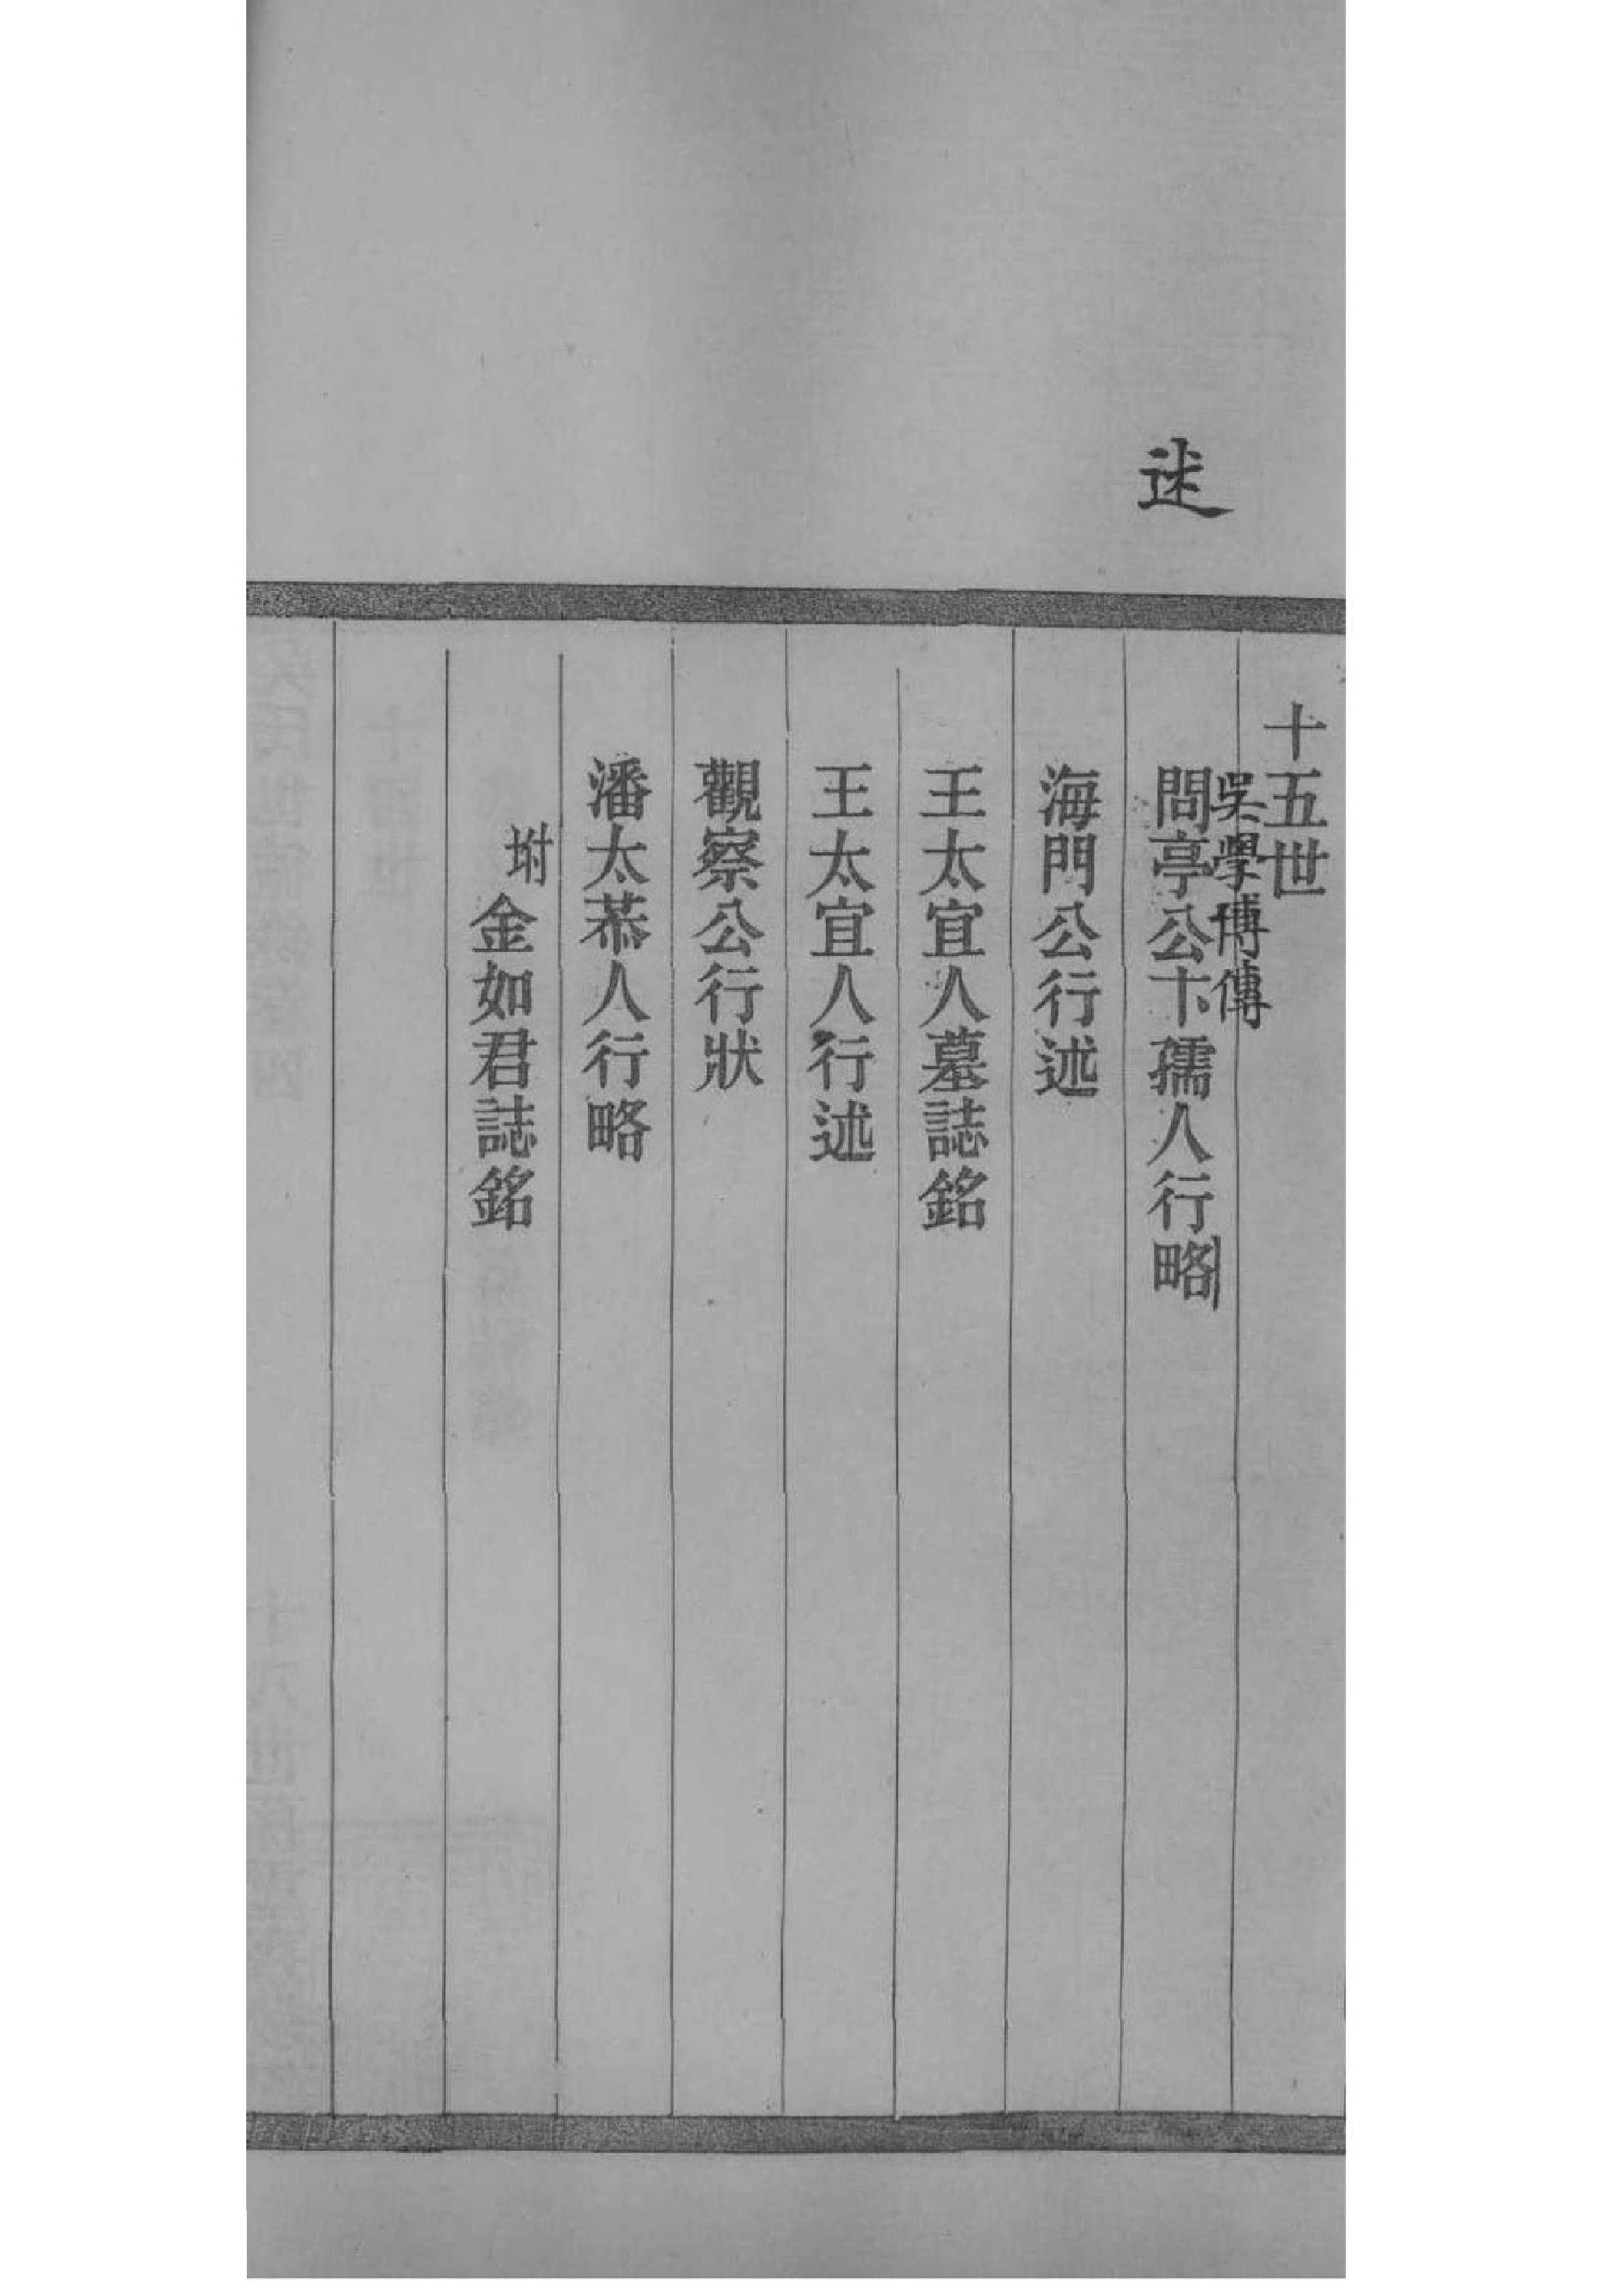 述
十五世
吳學博傳
問亭公卞孺人行略
海門公行述
王太宜人墓誌銘
王太宜人行述
觀察公行狀
潘太恭人行略
坿
金如君誌銘